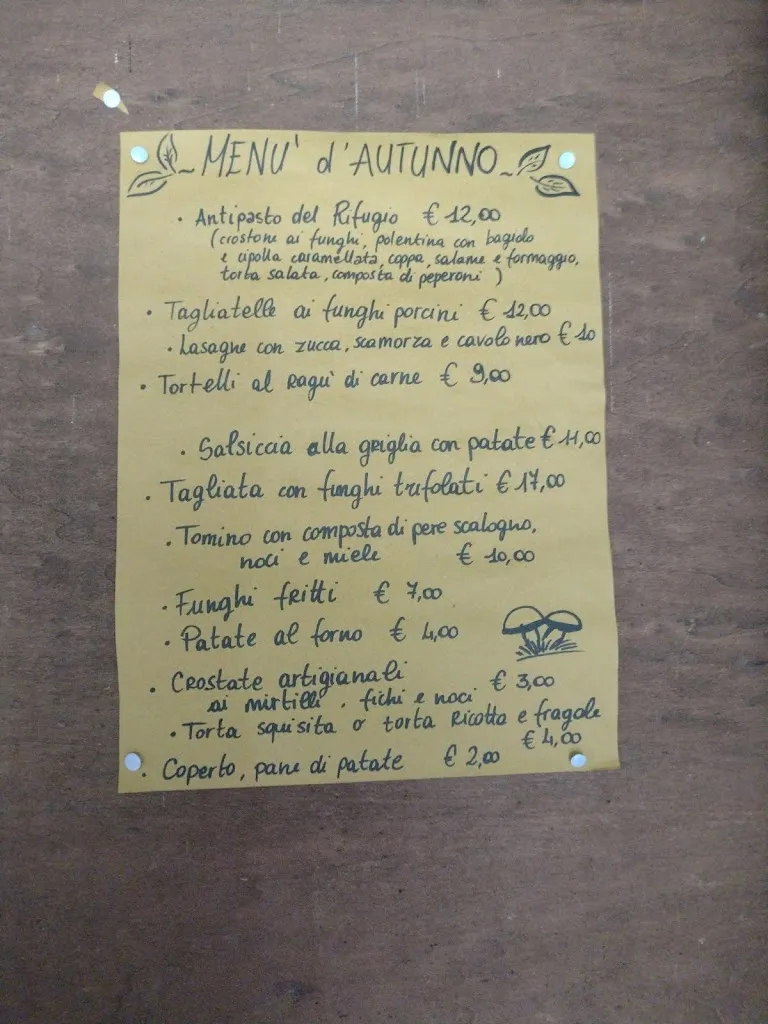 ~ MENU' d'AUTUNNO ~
· Antipasto del Rifugio € 12,00
(crostone ai funghi, polentina con bagiolo
e cipolla caramellata, coppa, salame e formaggio,
torta salata, composta di peperoni)
· Tagliatelle ai funghi porcini € 12,00
· Lasagne con zucca, scamorza e cavolo nero € 10
· Tortelli al ragu' di carne € 9,00
· Salsiccia alla griglia con patate € 11,00
· Tagliata con funghi trifolati € 17,00
· Tomino con composta di pere scalogno,
noci e miele € 10,00
· Funghi fritti € 7,00
· Patate al forno € 4,00
· Crostate artigianali € 3,00
ai mirtilli, fichi e noci
· Torta squisita o torta Ricotta e fragole
€ 4,00
· Coperto, pane di patate € 2,00